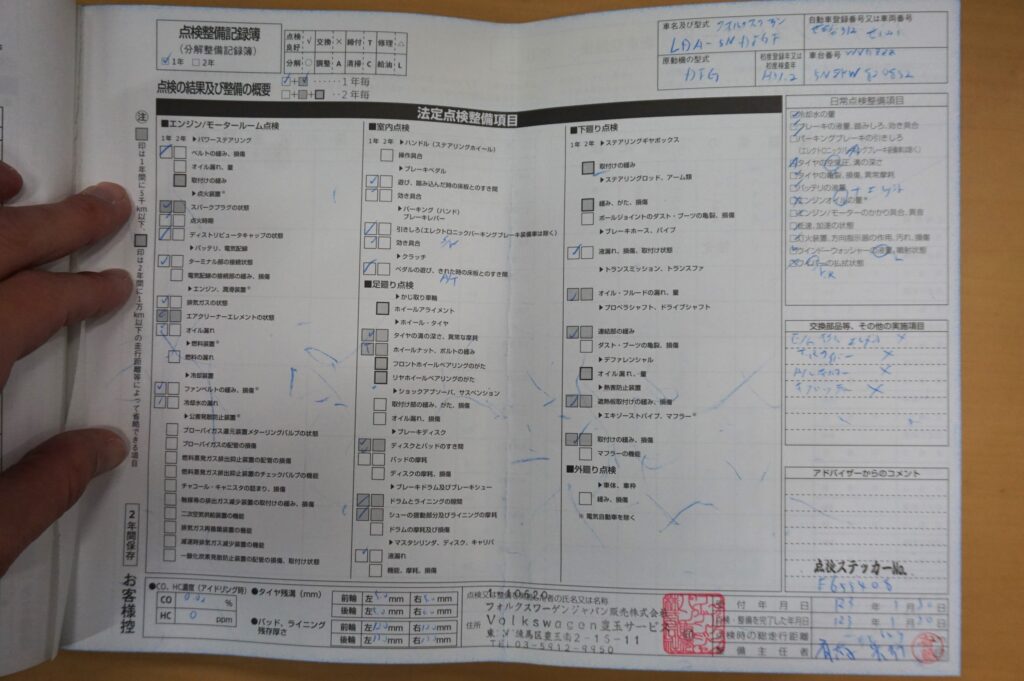 点検整備記録簿
(分解整備記録簿)
1年 2年
点検良好 √ 交換 × 締付 T 修理 △
分解 ○ 調整 A 清掃 C 給油 L
点検の結果及び整備の概要
1年毎
2年毎
車名及び型式
自動車登録番号又は車両番号
原動機の型式
初度登録年又は初度検査年
車台番号
法定点検整備項目
注 印は1年間に5千km以下、印は2年間に1万km以下の走行距離等によって省略できる項目
2年間保存
お客様控
■エンジン/モータールーム点検
1年 2年 ▶パワーステアリング
ベルトの緩み、損傷
オイル漏れ、量
取付けの緩み
▶点火装置※
スパークプラグの状態
点火時期
ディストリビュータキャップの状態
▶バッテリ、電気配線
ターミナル部の接続状態
電気配線の接続部の緩み、損傷
▶エンジン、潤滑装置※
排気ガスの状態
エアクリーナーエレメントの状態
オイル漏れ
▶燃料装置※
燃料の漏れ
▶冷却装置
ファンベルトの緩み、損傷※
冷却水の漏れ
▶公害発散防止装置※
ブローバイガス還元装置メターリングバルブの状態
ブローバイガスの配管の損傷
燃料蒸発ガス排出抑止装置の配管の損傷
燃料蒸発ガス排出抑止装置のチェックバルブの機能
チャコール・キャニスタの詰まり、損傷
触媒等の排出ガス減少装置の取付けの緩み、損傷
二次空気供給装置の機能
排気ガス再循環装置の機能
減速時排気ガス減少装置の機能
一酸化炭素発散防止装置の配管の損傷、取付け状態
■室内点検
1年 2年 ▶ハンドル(ステアリングホイール)
操作具合
▶ブレーキペダル
遊び、踏み込んだ時の床板とのすき間
効き具合
▶パーキング(ハンド)
ブレーキレバー
引きしろ(エレクトロニックパーキングブレーキ装備車は除く)
効き具合
▶クラッチ
ペダルの遊び、きれた時の床板とのすき間
■足廻り点検
▶かじ取り車輪
ホイールアライメント
▶ホイール・タイヤ
タイヤの溝の深さ、異常な摩耗
ホイールナット、ボルトの緩み
フロントホイールベアリングのがた
リヤホイールベアリングのがた
▶ショックアブソーバ、サスペンション
取付け部の緩み、がた、損傷
オイル漏れ、損傷
▶ブレーキディスク
ディスクとパッドのすき間
パッドの摩耗
ディスクの摩耗、損傷
▶ブレーキドラム及びブレーキシュー
ドラムとライニングの隙間
シューの摺動部分及びライニングの摩耗
ドラムの摩耗及び損傷
▶マスタシリンダ、ディスク、キャリパ
液漏れ
機能、摩耗、損傷
■下廻り点検
1年 2年 ▶ステアリングギヤボックス
取付けの緩み
▶ステアリングロッド、アーム類
緩み、がた、損傷
ボールジョイントのダスト・ブーツの亀裂、損傷
▶ブレーキホース、パイプ
液漏れ、損傷、取付け状態
▶トランスミッション、トランスファ
オイル・フルードの漏れ、量
▶プロペラシャフト、ドライブシャフト
連結部の緩み
ダスト・ブーツの亀裂、損傷
▶デファレンシャル
オイル漏れ、量
▶熱害防止装置
遮熱板取付けの緩み、損傷
▶エキゾーストパイプ、マフラー※
取付けの緩み、損傷
マフラーの機能
■外廻り点検
▶車体、車枠
緩み、損傷
※ 電気自動車を除く
日常点検整備項目
冷却水の量
ブレーキの液量、踏みしろ、効き具合
パーキングブレーキの引きしろ
(エレクトロニックパーキングブレーキ装備車は除く)
タイヤの空気圧、溝の深さ
タイヤの亀裂、損傷、異常摩耗
バッテリの液量
エンジンオイルの量※
エンジン/モーターのかかり具合、異音
低速、加速の状態
灯火装置、方向指示器の作用、汚れ、損傷
ウインドーウォッシャーの液量、噴射状態
ワイパーの払拭状態
交換部品等、その他の実施項目
アドバイザーからのコメント
点検ステッカーNo.
●CO、HC濃度(アイドリング時)
CO %
HC 0 ppm
●タイヤ残溝(mm)
前輪 左 mm 右 mm
後輪 左 mm 右 mm
●パッド、ライニング残存厚さ
前輪 左 mm 右 mm
後輪 左 mm 右 mm
住所
フォルクスワーゲンジャパン販売株式会社
Volkswagen豊玉サービス
東京都練馬区豊玉南2-15-11
TEL03-5912-9950
受付年月日
点検・整備を完了した年月日
点検時の総走行距離
整備主任者